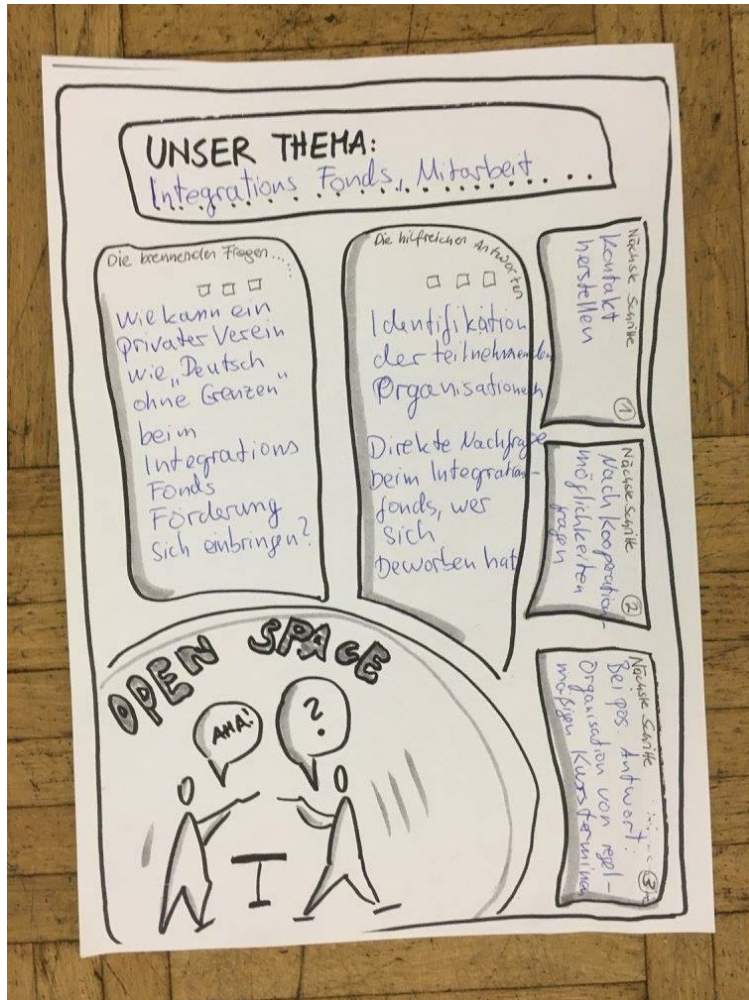 UNSER THEMA:
Integrations Fonds, Mitarbeit
Die brennenden Fragen.....
Wie kann ein
privater Verein
wie „Deutsch
ohne Grenzen"
beim
Integrations
Fonds
Förderung
sich einbringen?
Die hilfreichen Antworten
Identifikation
der teilnehmenden
Organisationen
Direkte Nachfrage
beim Integration-
fonds, wer
sich
beworben hat
Nächste Schritte
Kontakt
herstellen
1
Nächste Schritte
Nach Kooperation-
möglichkeiten
fragen
2
Nächste Schritte
Bei pos. Antwort:
Organisation von regel-
mäßigen Kursterminen
3
OPEN SPACE
AHA!
?